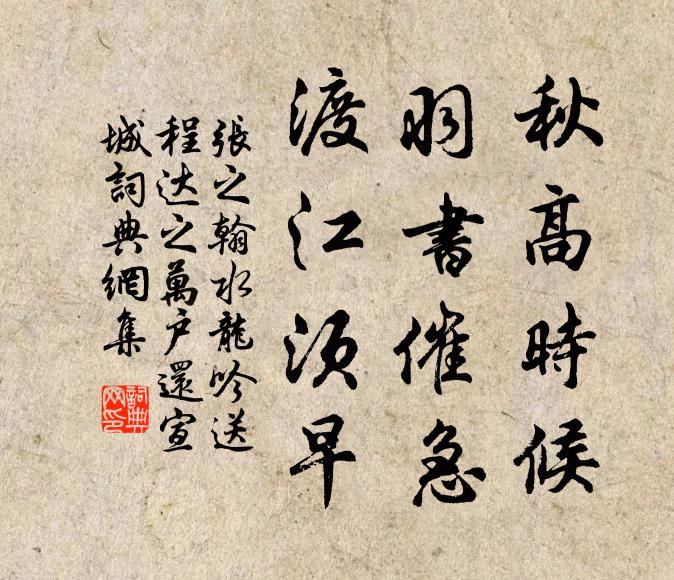 秋高時候
羽書催急
渡江須早
張之翰水龍吟送
程达之萬户還宣
城詞典網集
詞典
网印